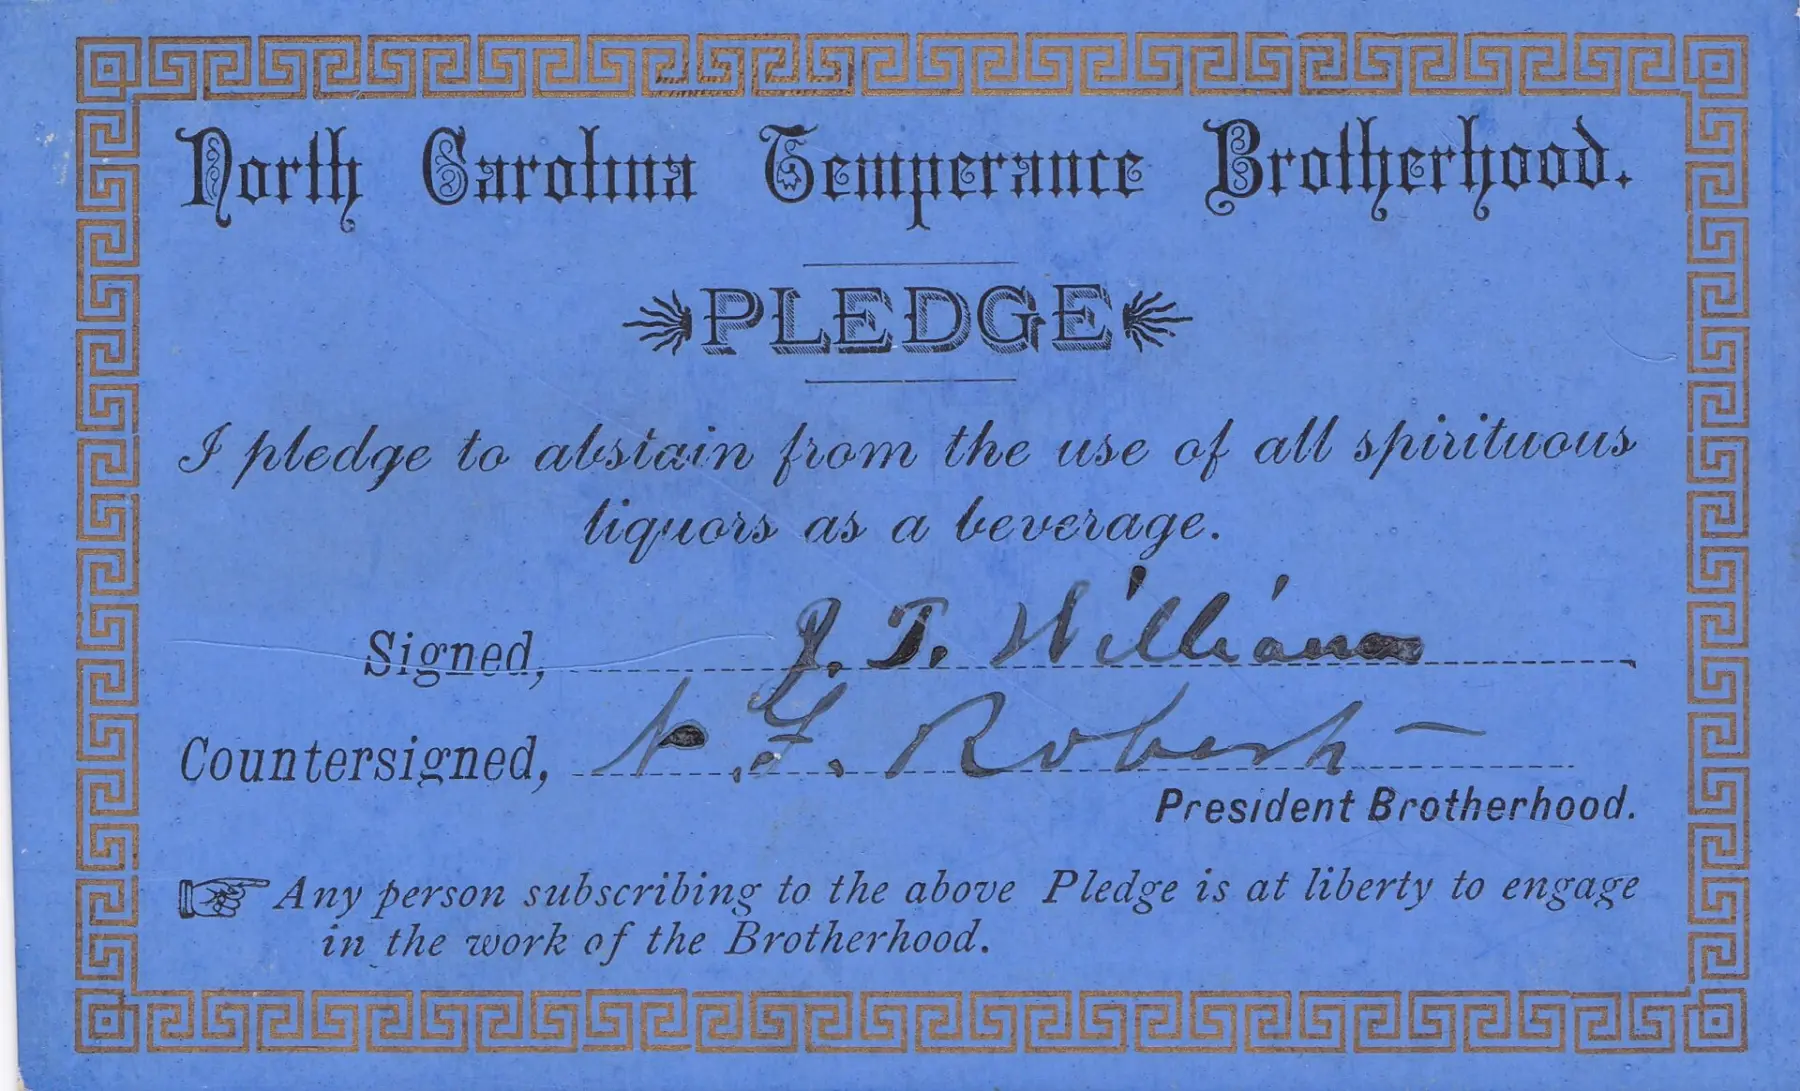 North Carolina Temperance Brotherhood.
PLEDGE
I pledge to abstain from the use of all spirituous
liquors as a beverage.
Signed, J. T. Williams
Countersigned, F. Roberts
President Brotherhood.
Any person subscribing to the above Pledge is at liberty to engage
in the work of the Brotherhood.